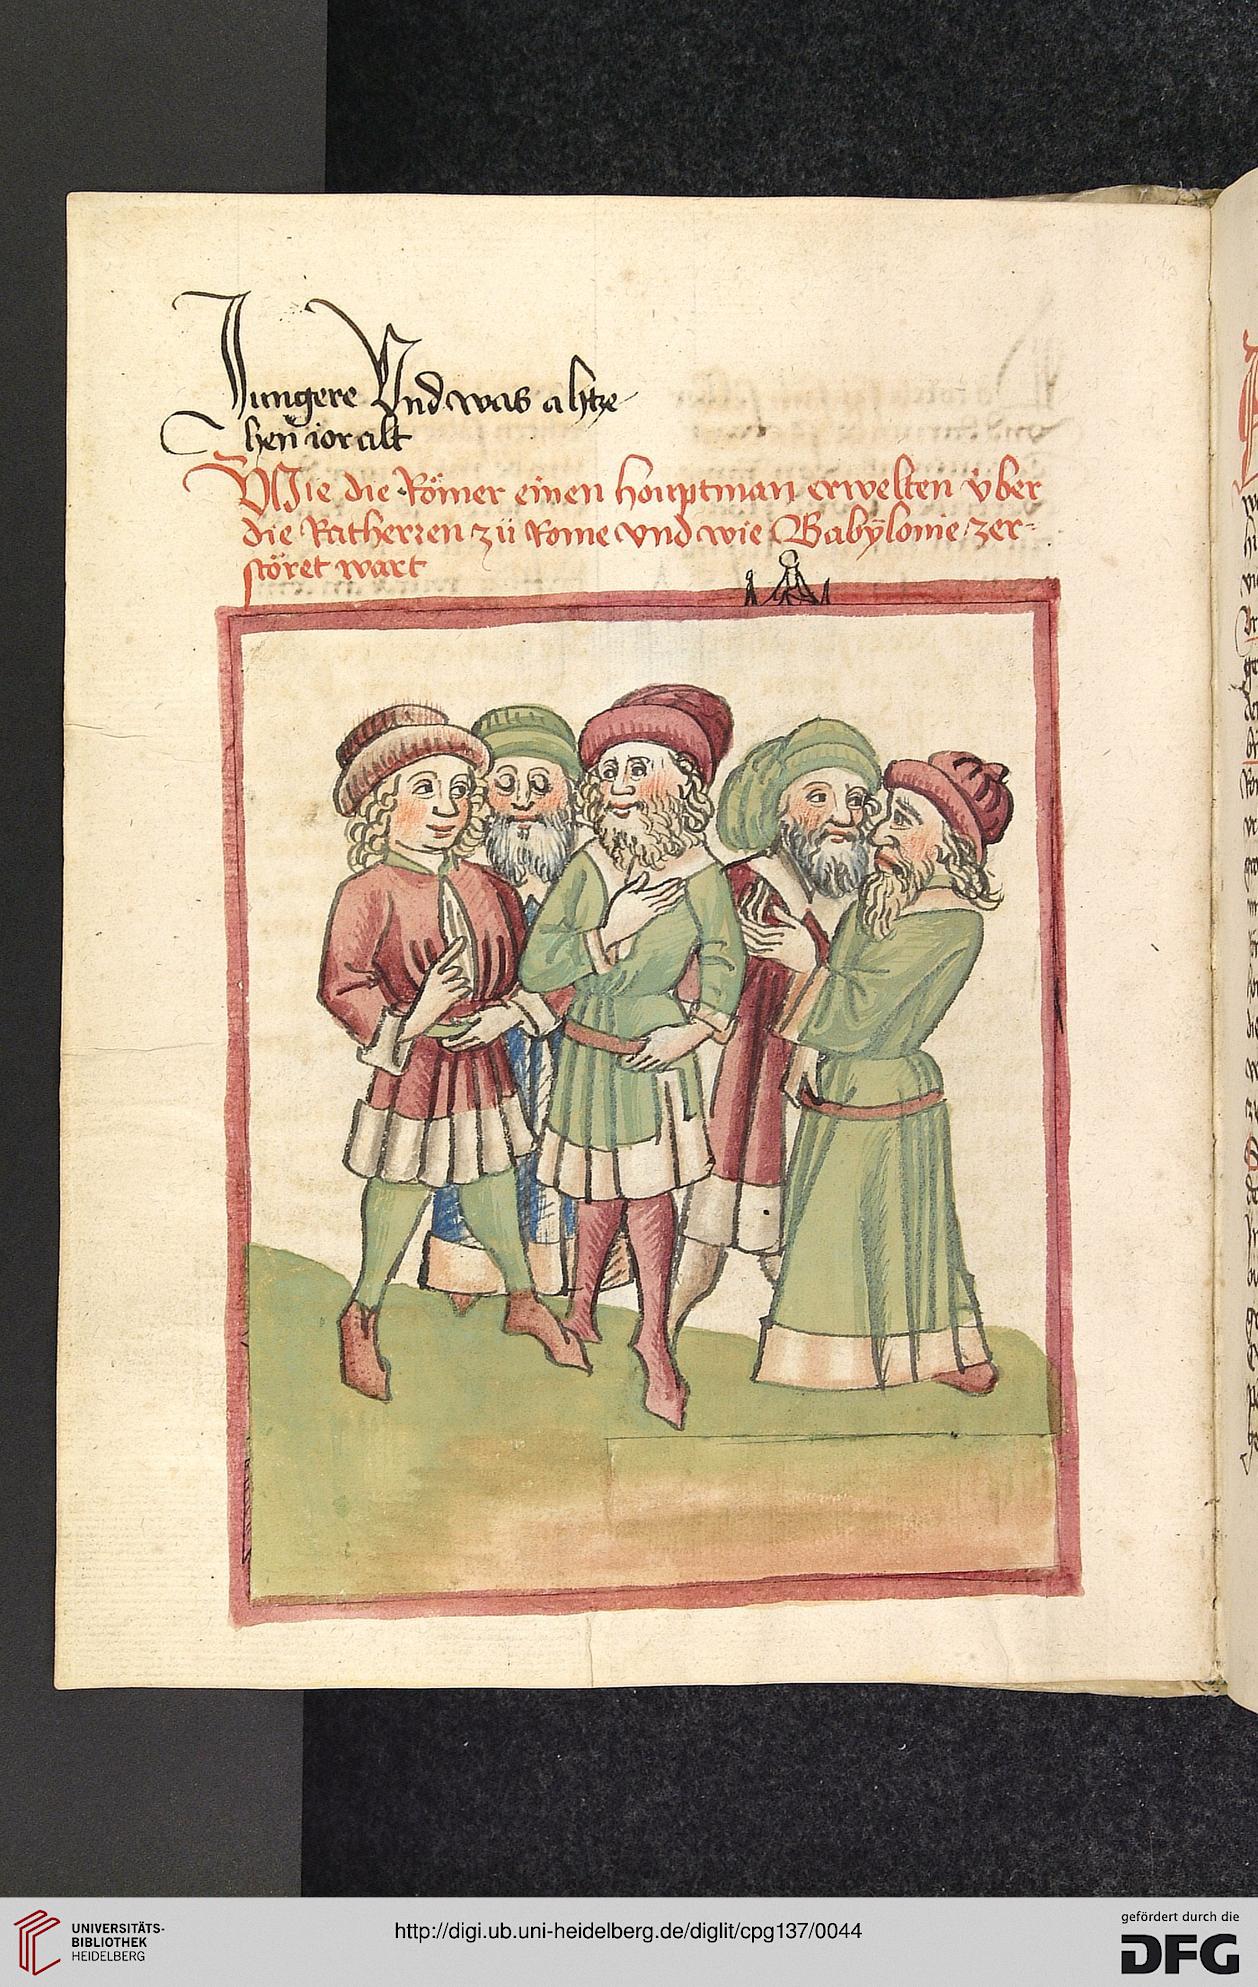 Jungere Vnd was ahtze-
hen̄ ior alt
Wie die Römer einen houptman erwelten v̈ber
die Ratherren zü Rome vnd wie Babÿlonie zer-
störet wart
UNIVERSITÄTS-
BIBLIOTHEK
HEIDELBERG
http://digi.ub.uni-heidelberg.de/diglit/cpg137/0044
gefördert durch die
DFG